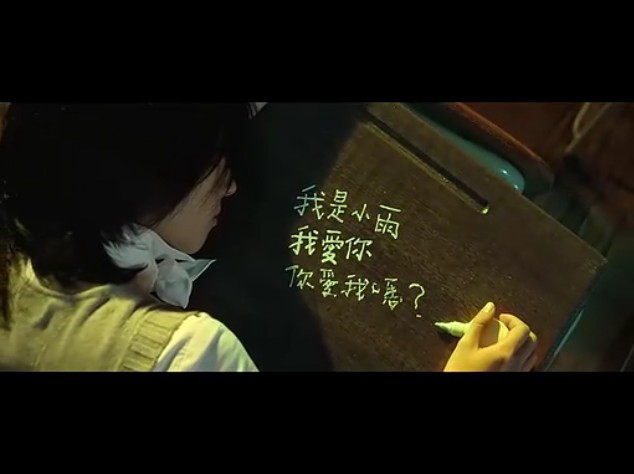 我是小雨
我愛你
你愛我嗎?